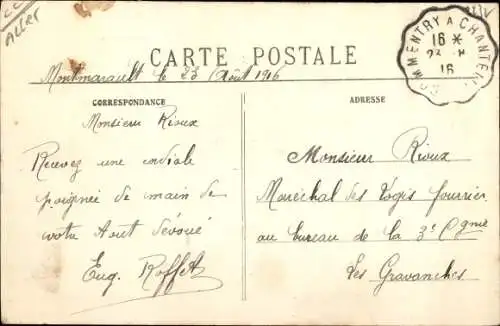 Aller
COMMENTRY A CHANTELLE
16 *
23 - 8
16
CARTE POSTALE
Montmarault le 23 Août 1916
CORRESPONDANCE
ADRESSE
Monsieur Rioux
Recevez une cordiale
poignée de main de
votre tout dévoué
Eug. Roffet
Monsieur Rioux
Maréchal des Logis fourrier
au bureau de la 3e Cgnie
Les Gravanches